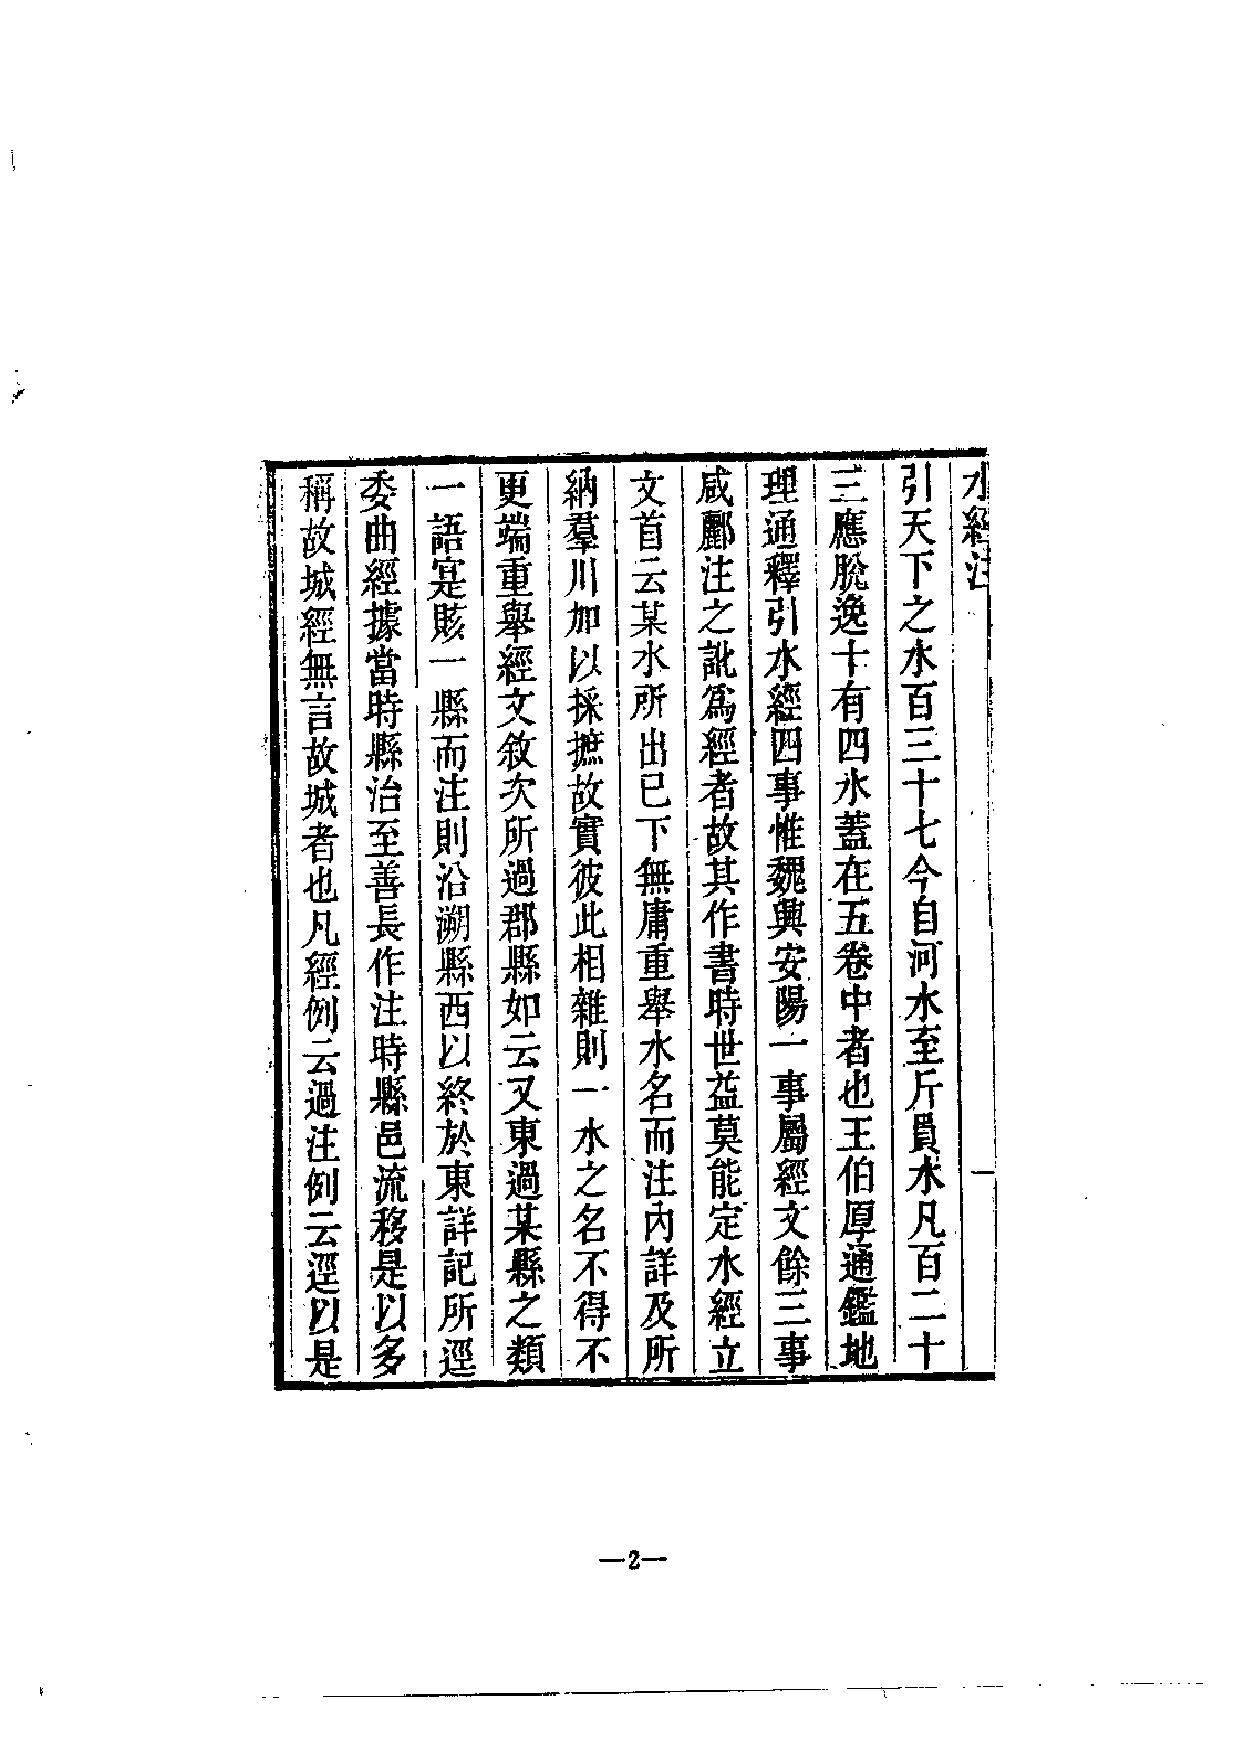 水經注
一
引天下之水百三十七今自河水至斤員水凡百二十
三應脫逸十有四水蓋在五卷中者也王伯厚通鑑地
理通釋引水經四事惟魏興安陽一事屬經文餘三事
咸酈注之訛爲經者故其作書時世益莫能定水經立
文首云某水所出已下無庸重舉水名而注內詳及所
納羣川加以採摭故實彼此相雜則一水之名不得不
更端重舉經文敘次所過郡縣如云又東過某縣之類
一語寔賅一縣而注則沿溯縣西以終於東詳記所逕
委曲經據當時縣治至善長作注時縣邑流移是以多
稱故城經無言故城者也凡經例云過注例云逕以是
—2—